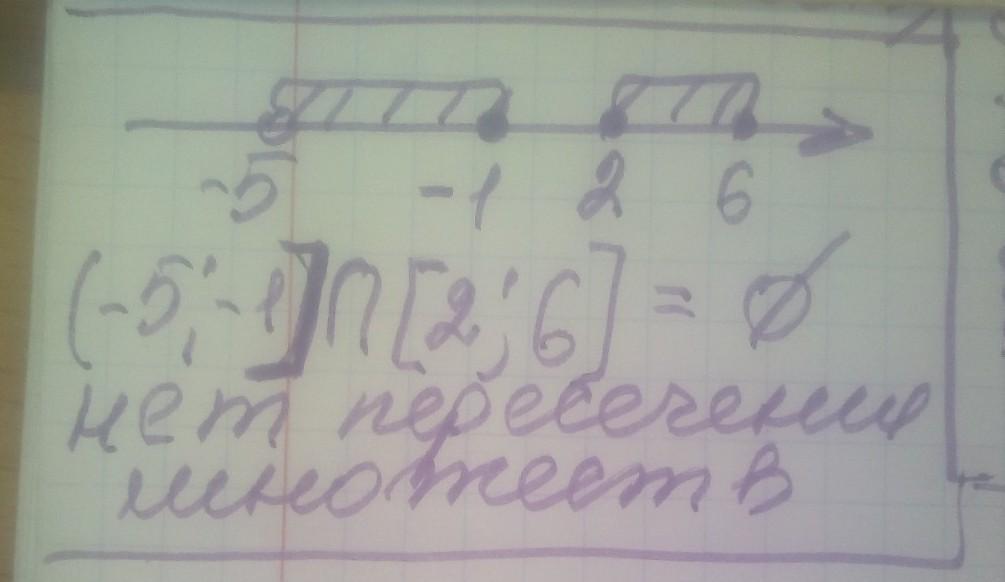 -5 -1 2 6
(-5; -1] ∩ [2; 6] = ∅
нет пересечения
множеств